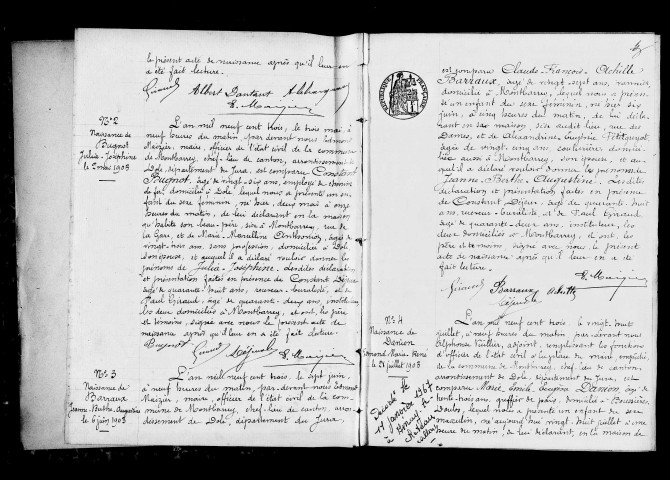 le présent acte de naissance après qu'il leur en
a été fait lecture.
Giraud Albert Dantant
E. Mazier
N° 2
Naissance de
Bugnot
Julia-Joséphine
le 2 mai 1903
L'an mil neuf cent trois, le trois mai à
neuf heures du matin par devant nous Edmond
Mazier, maire, officier de l'état civil de la commune
de Montbarrey, chef-lieu de canton, arrondissement de
Dole, département du Jura, est comparu Constant
Bugnot, âgé de vingt-six ans, employé de chemin
de fer, domicilié à Dole, lequel nous a présenté un en-
fant du sexe féminin, né hier, deux mai à onze
heures du matin, de lui déclarant en la maison
qu'habite son beau-père, sise à Montbarrey, rue de
la Gare, et de Marie-Marcelline âgée de
vingt-trois ans, sans profession, domiciliée à Dole
son épouse, et auquel il a déclaré vouloir donner les
prénoms de Julia-Joséphine. Lesdites déclaration
et présentation faites en présence de Constant Déjeux,
âgé de quarante-huit ans, receveur-buraliste, et de
Paul Giraud, âgé de quarante-deux ans, instituteur,
les deux domiciliés à Montbarrey, et ont, les père
et témoins, signé avec nous le présent acte de
naissance après qu'il leur en a été fait lecture.
Bugnot Giraud Déjeux E. Mazier
N° 3
Naissance de
Barraux
Jeanne-Berthe-Augustine
le 6 juin 1903
L'an mil neuf cent trois, le sept juin,
à neuf heures du matin, par devant nous Edmond
Mazier, maire, officier de l'état civil de la com-
mune de Montbarrey, chef-lieu de canton, arron-
dissement de Dole, département du Jura,
est comparu Claude-François-Achille
Barraux, âgé de vingt-sept ans,
domicilié à Montbarrey, lequel nous a présen-
té un enfant du sexe féminin, né hier six
juin, à cinq heures du matin, de lui décla-
rant en sa maison, sise audit lieu, rue des
Dames, et de Alexandrine
âgée de vingt-cinq ans, couturière domici-
liée aussi à Montbarrey, son épouse, et au-
quel il a déclaré vouloir donner les prénoms de
Jeanne-Berthe-Augustine. Lesdites
déclaration et présentation faites en présence
de Constant Déjeux, âgé de quarante-huit
ans, receveur-buraliste et de Paul Giraud
âgé de quarante-deux ans, instituteur, les
deux domiciliés à Montbarrey, et ont les
père et témoins, signé avec nous le présent
acte de naissance après qu'il leur en a été
fait lecture.
E. Mazier
Giraud Barraux Achille
Déjeux
N° 4
Naissance de
Danion
Marie René
le 28 juillet 1903
Décédé le
14 janvier 1967
à
L'an mil neuf cent trois le vingt-huit
juillet, à neuf heures du matin par devant nous
Alphonse Vuillier, adjoint, remplissant les fonctions
d'officier de l'état civil en place du maire empêché
de la commune de Montbarrey, chef-lieu de canton,
arrondissement de Dole, département du Jura, est
comparu Marie Emile Eugène Danion âgé de
trente ans, greffier de paix, domicilié à Boussières,
Doubs, lequel nous a présenté un enfant du sexe
masculin, né aujourd'hui vingt-huit juillet à une
heure du matin, de lui déclarant, en la maison de